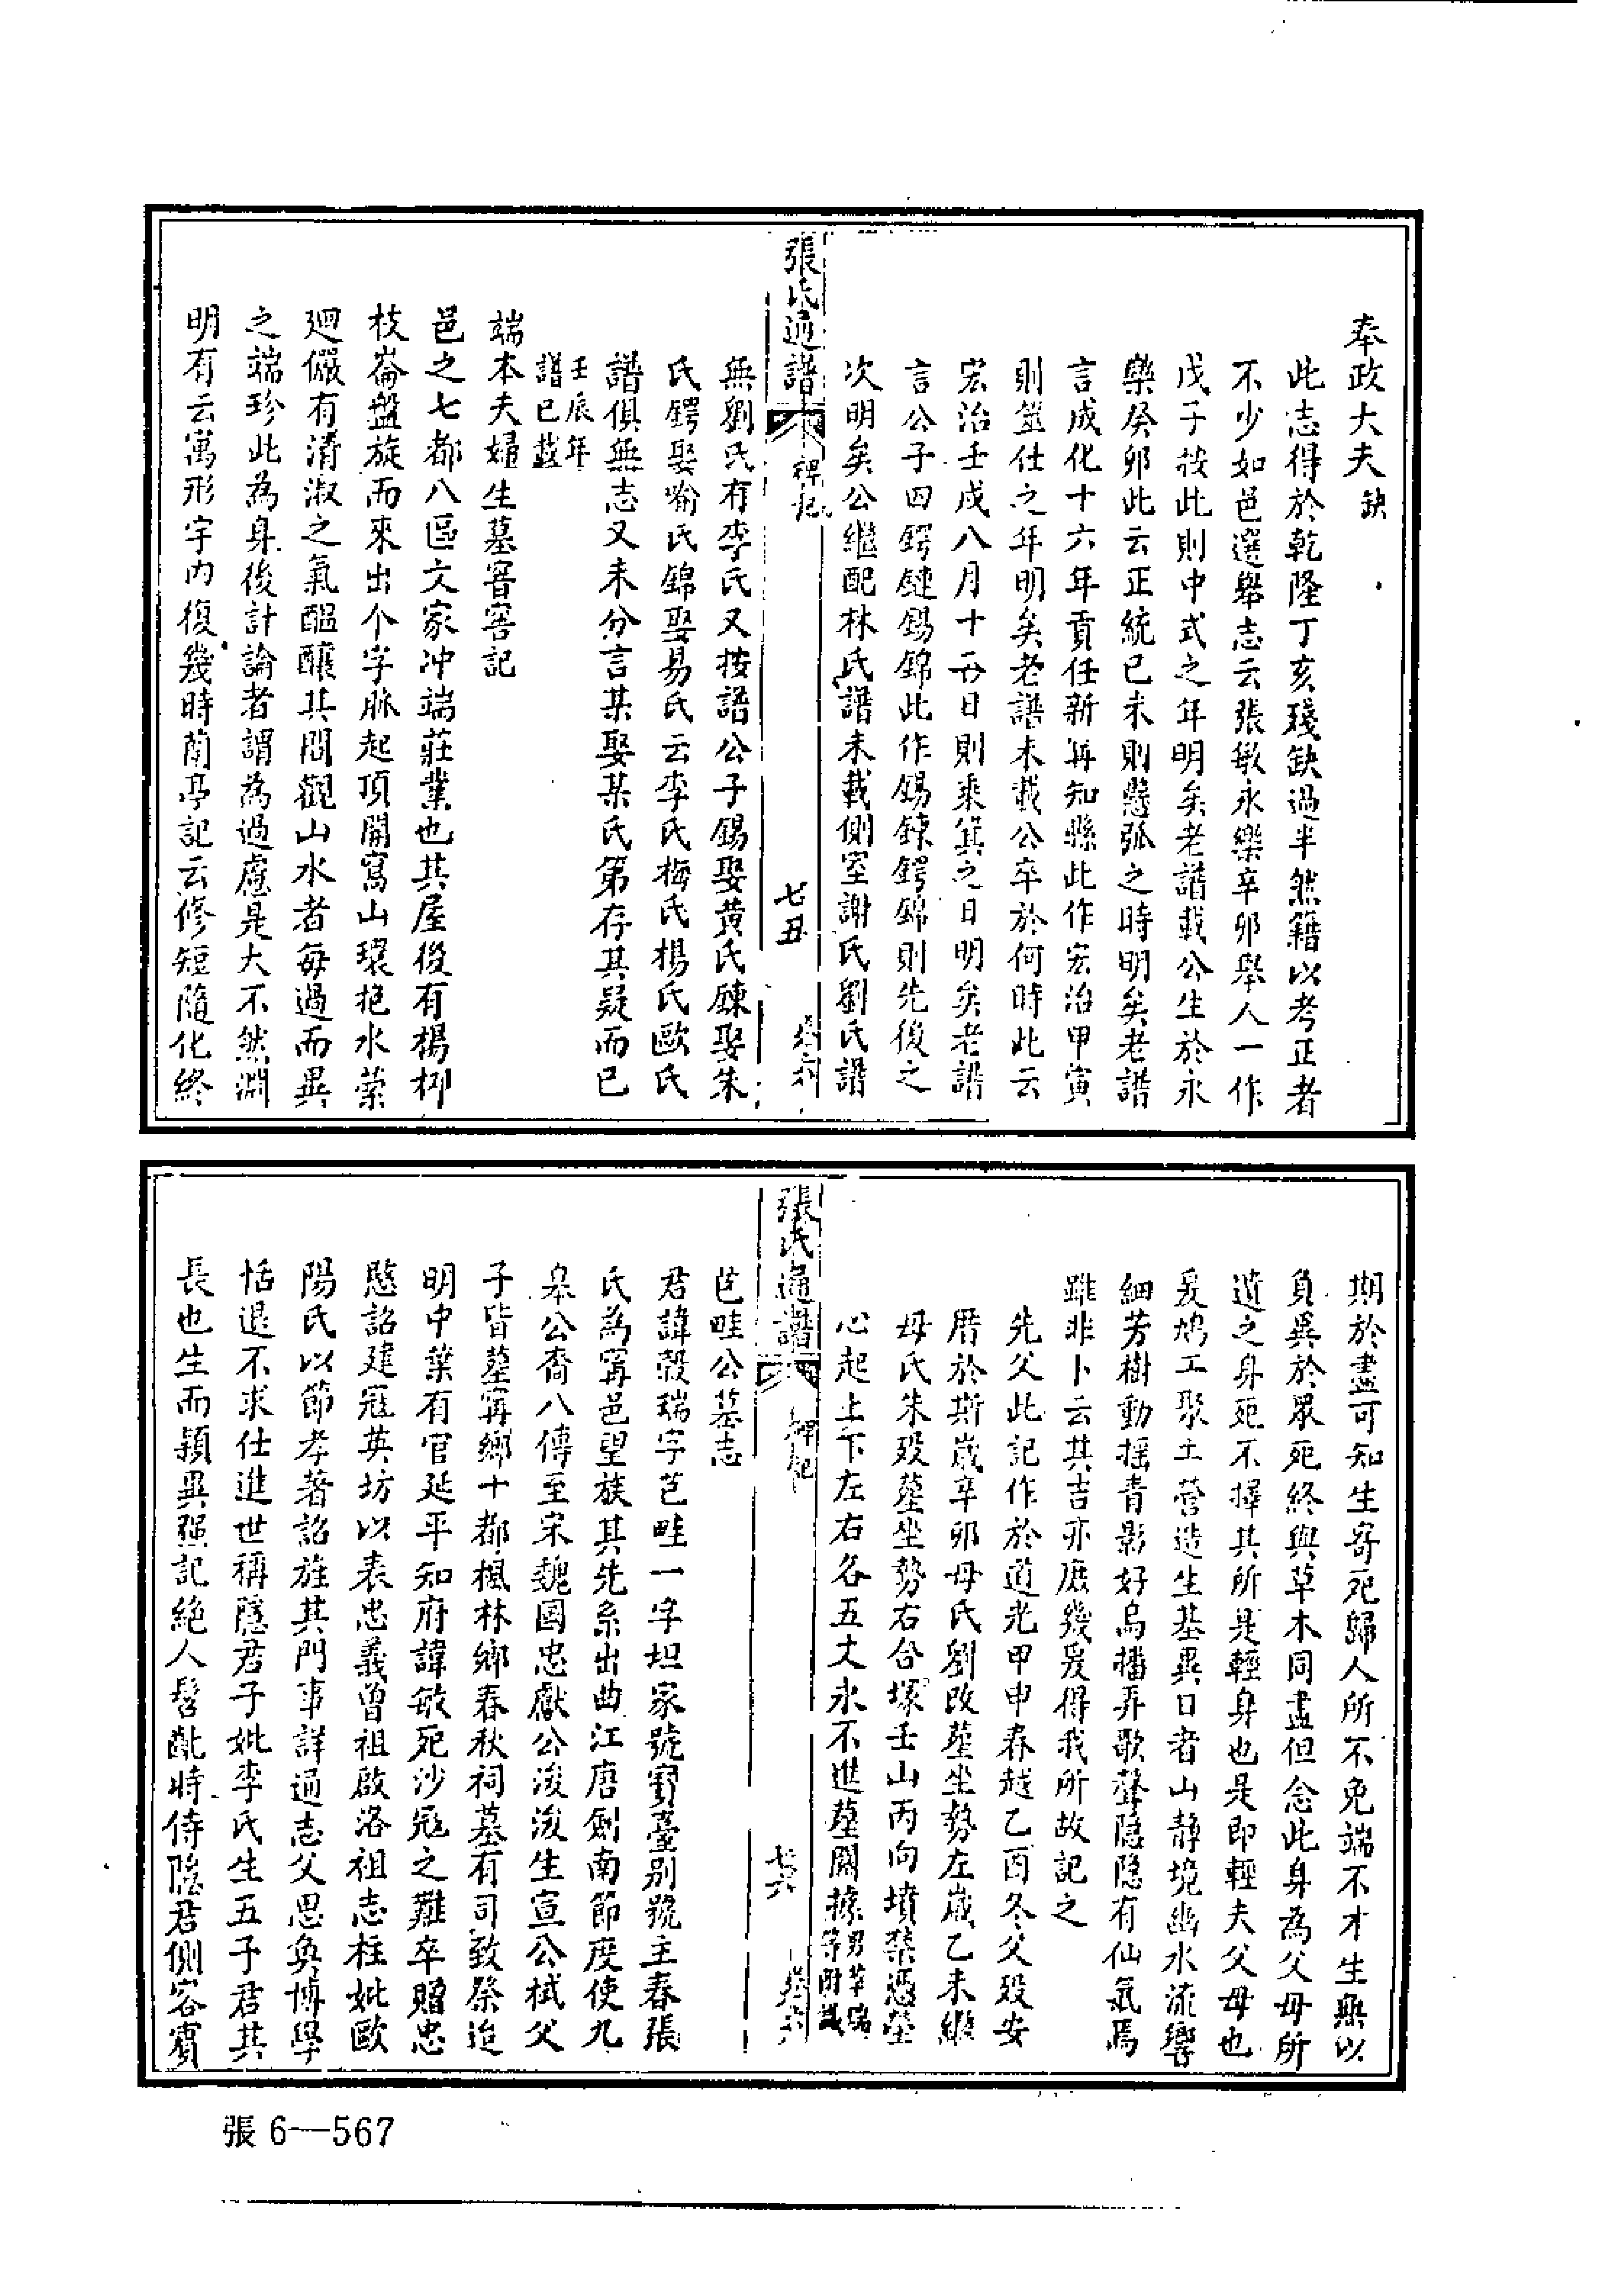 奉政大夫缺
此志得於乾隆丁亥殘缺過半然籍以考正者
不少如邑選舉志云張敏永樂辛卯舉人一作
戊子按此則中式之年明矣老譜載公生於永
樂癸卯此云正統已未則懸弧之時明矣老譜
言成化十六年貢任新寗知縣此作宏治甲寅
則筮仕之年明矣老譜未載公卒於何時此云
宏治壬戌八月十五日則乘箕之日明矣老譜
言公子四鍔鏈錫錦此作錫鍊鍔錦則先後之
次明矣公繼配林氏譜未載側室謝氏劉氏譜
張氏通譜 裨記 七五 卷六
無劉氏有李氏又按譜公子錫娶黄氏鍊娶朱
氏鍔娶喻氏錦娶易氏云李氏梅氏楊氏歐氏
譜俱無志又未分言某娶某氏第存其疑而已
壬辰年
譜已載
端本夫婦生墓窨窖記
邑之七都八區文家冲端莊業也其屋後有楊柳
枝崙盤旋而來出个字脉起頂開窩山環抱水縈
廻儼有清淑之氣醖釀其間觀山水者每過而異
之端珍此為身後計論者謂為過慮是大不然淵
明有云寓形宇内復幾時蘭亭記云修短隨化終
期於盡可知生寄死歸人所不免端不才生無以
負異於眾死終與草木同盡但念此身為父母所
遺之身死不擇其所是輕身也是即輕夫父母也
爰鳩工聚土營造生基異日者山静境幽水流響
細芳樹動摇青影好鳥播弄歌聲隐隐有仙氣焉
雖非卜云其吉亦庶幾爰得我所故記之
先父此記作於道光甲申春越乙酉冬父歿安
厝於斯嵗辛卯母氏劉改塟坐勢左嵗乙未繼
母氏朱歿塟坐勢右合塚壬山丙向墳禁憑塋
心起上下左右各五丈永不進塟關據男萃瑞
等附識
張氏通譜 裨記 七六 卷六
芑畦公墓志
君諱榖瑞字芑畦一字坦家號寶臺别號主春張
氏為寗邑望族其先系出曲江唐劍南節度使九
皋公裔八傳至宋魏國忠獻公浚浚生宣公栻父
子皆塟寗鄉十都楓林鄉春秋祠墓有司致祭迨
明中葉有官延平知府諱敏死沙冦之難卒贈忠
愍詔建冠英坊以表忠義曾祖啟洛祖志柱妣歐
陽氏以節孝著詔旌其門事詳通志父思奐博學
恬退不求仕進世稱隱君子妣李氏生五子君其
長也生而頴異强記絶人髫齔時侍隐君側客賓
張 6—567